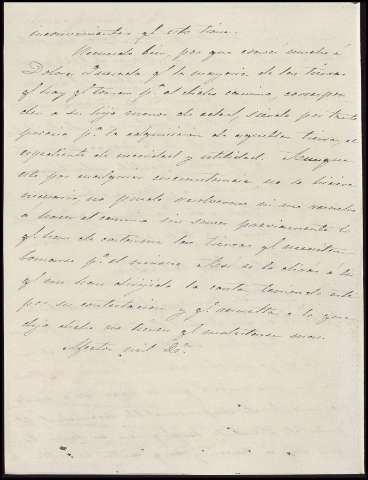 inconvenientes qe esto tiene.
Recuerdo bien, por que conocí mucho á
Dolores, que la mayoria de las tierras
qe hay qe tomar pa el dicho camino, correspon
den a su hijo menor de edad, siendo por tanto
preciso pa la adquisicion de aquellas tierras, el
expediente de necesidad y utilidad. Aunque
esto por cualquier circunstancia, no se hiciera
necesario, no puedo resolverme ni me resuelvo
a hacer el camino sin saber previamente lo
qe han de costarme las tierras qe necesitan
tomarse pa el mismo. Asi se lo dirás a los
qe me han dirigido la carta teniendo esta
por su contestacion y qe resuelto á lo que
dejo dicho no tienen qe molestarse mas.
Afecto mil Da